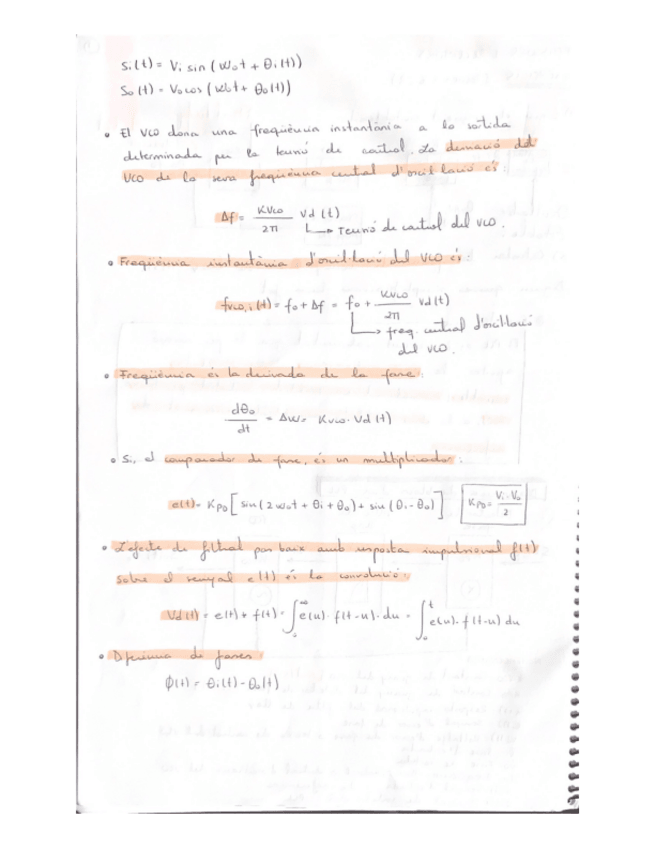 Si(t) = Vi sin (ωot + θi(t))
So(t) = Vo cos (ωot + θo(t))
• El VCO dona una freqüència instantània a la sortida
determinada per la tensió de control. La desviació del
VCO de la seva freqüència central d'oscil·lació és:
Δf = KVCO/2π Vd(t)
↳ Tensió de control del VCO.
• Freqüència instantània d'oscil·lació del VCO és:
fVCO,i(t) = fo + Δf = fo + KVCO/2π Vd(t)
↳ freq. central d'oscil·lació
del VCO.
• Freqüència és la derivada de la fase:
dθo/dt = Δω = KVCO · Vd(t)
• Si, el comparador de fase, és un multiplicador:
e(t) = KPD [sin(2ωot + θi + θo) + sin(θi - θo)] KPD = Vi·Vo/2
• L'efecte de filtrat pas baix amb resposta impulsional f(t)
sobre el senyal e(t) és la convolució:
Vd(t) = e(t) * f(t) = ∫₀^∞ e(u) · f(t-u) · du = ∫₀^t e(u) · f(t-u) du
• Diferència de fases:
φ(t) = θi(t) - θo(t)